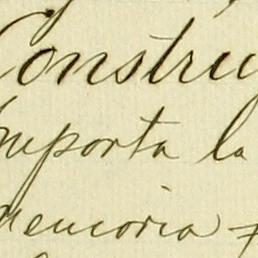 Constru
importa la
memoria